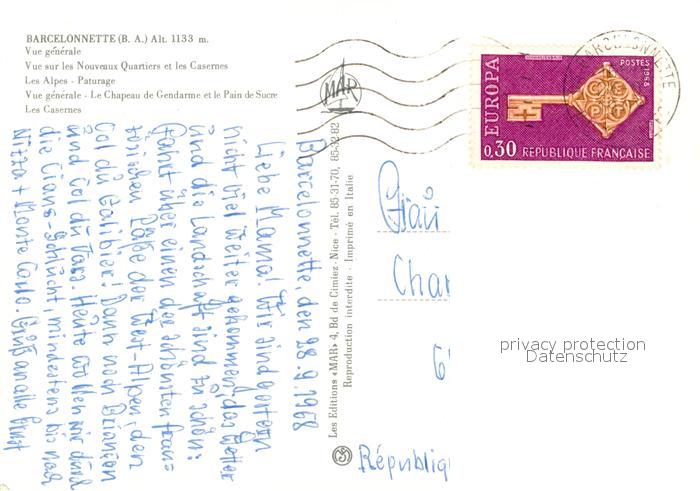 BARCELONNETTE (B. A.) Alt. 1133 m.
Vue générale
Vue sur les Nouveaux Quartiers et les Casernes
Les Alpes - Paturage
Vue générale - Le Chapeau de Gendarme et le Pain de Sucre
Les Casernes
MAR
BARCELONNETTE
EUROPA
POSTES
1968
CEPT
0,30 RÉPUBLIQUE FRANÇAISE
Barcelonnette, den 28.9.1968
Liebe Mama! Wir sind gestern
nicht viel weiter gekommen, das Wetter
und die Landschaft sind zu schön:
Fahrt über einen der schönsten fran=
zösischen Pässe der West-Alpen, den
Col du Galibier! Dann noch Briançon
und Col du Vars. Heute wollen wir durch
die Cians-Schlucht, mindestens bis nach
Nizza + Monte Carlo. Gruß an alle
Les Editions «MAR» 4, Bd de Cimiez - Nice - Tél. 85-31-70, 85-32-82
Reproduction interdite - Imprimé en Italie
Char
Républiq
privacy protection
Datenschutz